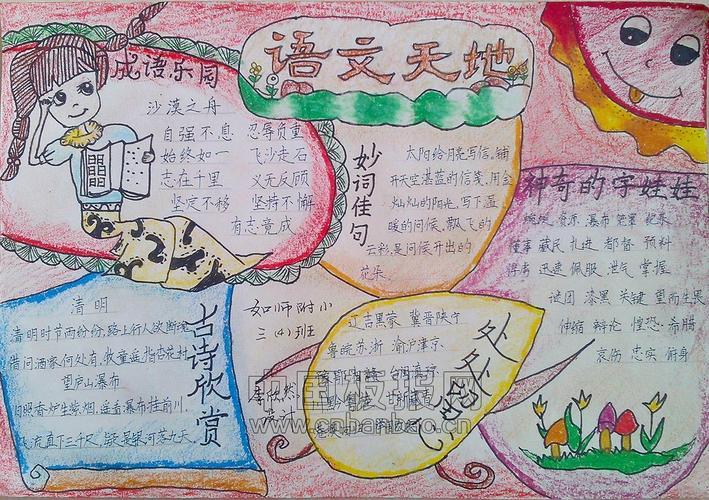 语文天地
成语乐园
沙漠之舟
自强不息 忍辱负重
始终如一 飞沙走石
志在千里 义无反顾
坚定不移 坚持不懈
有志竟成
妙词佳句
太阳给月亮写信。铺
开天空湛蓝的信笺,用金
灿灿的阳光,写下温
暖的问候。飘飞的
云彩,是问候开出的
花朵
神奇的字娃娃
瀑布 笼罩
董事 藏民 扎进 都督 预料
迅速 佩服 泄气 掌握
谜团 漆黑 关键 望而生畏
伸缩 辩论 惶恐
哀伤 忠实 俯身
古诗欣赏
清明
清明时节雨纷纷,路上行人欲断魂
借问酒家何处有,牧童遥指杏花村
望庐山瀑布
日照香炉生紫烟,遥看瀑布挂前川
飞流直下三千尺,疑是银河落九天
如师附小
三(4)班
李欣然
处处留心
辽吉黑蒙 冀晋陕宁
粤皖苏浙 渝沪津京
中国板报网
www.cnbanbao.cn